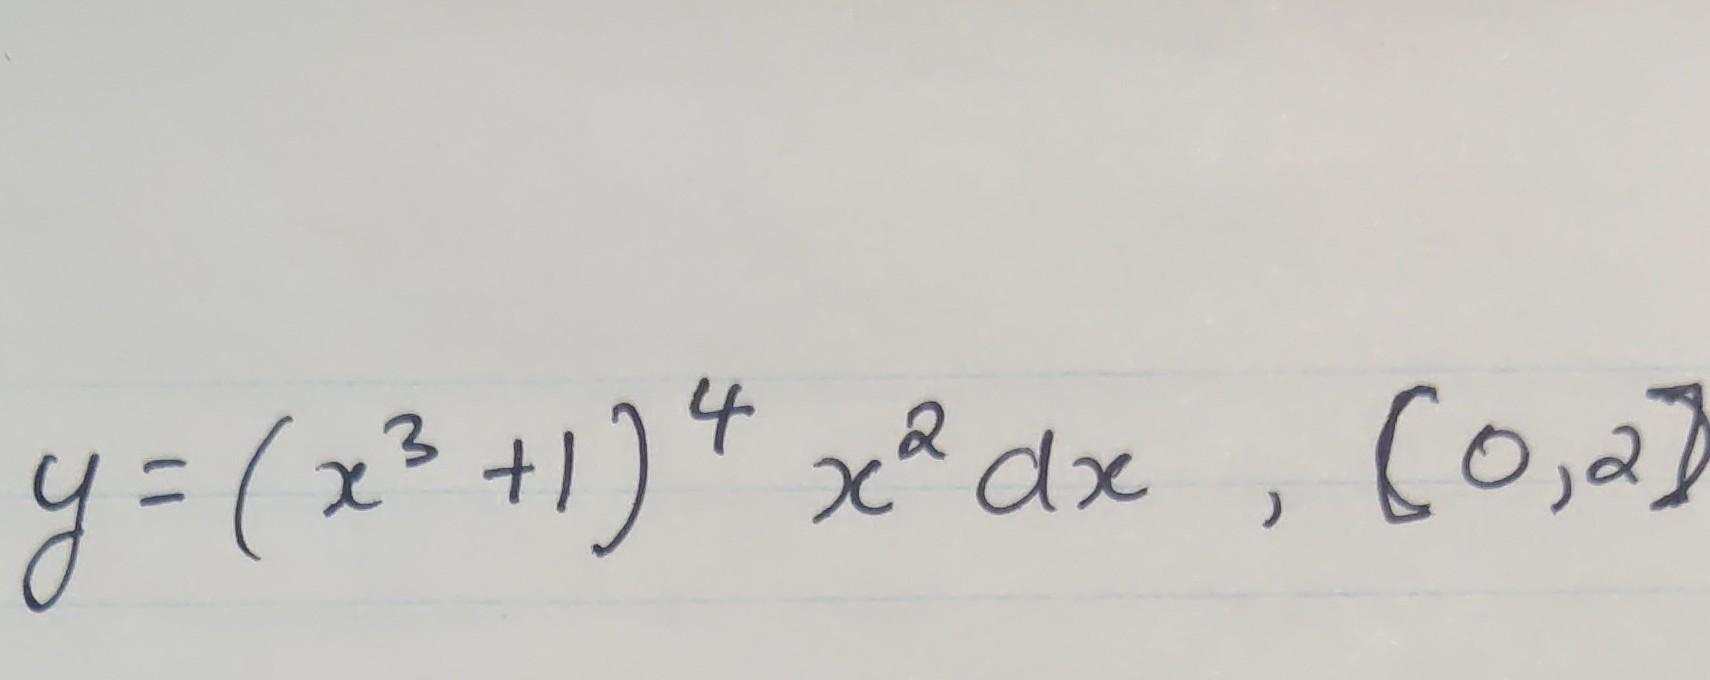 y = (x³ + 1)⁴ x² dx , [0,2]